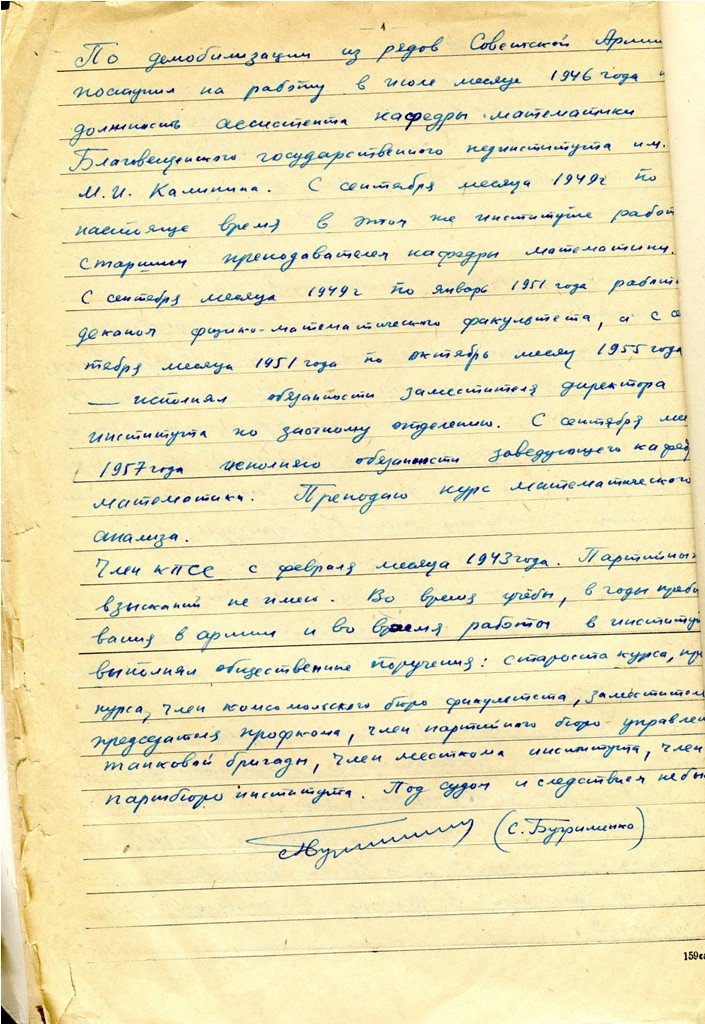 — 4
По демобилизации из рядов Советской Армии
поступил на работу в июле месяце 1946 года н
должность ассистента кафедры математики
Благовещенского государственного пединститута им.
М.И. Калинина. С сентября месяца 1949г по
настояще время в этом же институте работ
старшим преподавателем кафедры математики.
С сентября месяца 1949г по январь 1951 года работ
деканом физико-математического факультета, а с се
тября месяца 1951 года по октябрь месяц 1955 года
— исполнял обязанности заместителя директора
института по заочному отделению. С сентября ме
1957 года исполняю обязанности заведующего кафед
математики. Преподаю курс математического
анализа.
Член КПСС с февраля месяца 1943 года. Партийных
взысканий не имею. Во время учёбы, в годы пребы
вания в армии и во время работы в институ
выполнял общественные поручения: староста курса, пр
курса, член комсомольского бюро факультета, заместител
председателя профкома, член партийного бюро управлен
танковой бригады, член месткома института, член
партбюро института. Под судом и следствием не бы
(С. Бугрименко)
159с